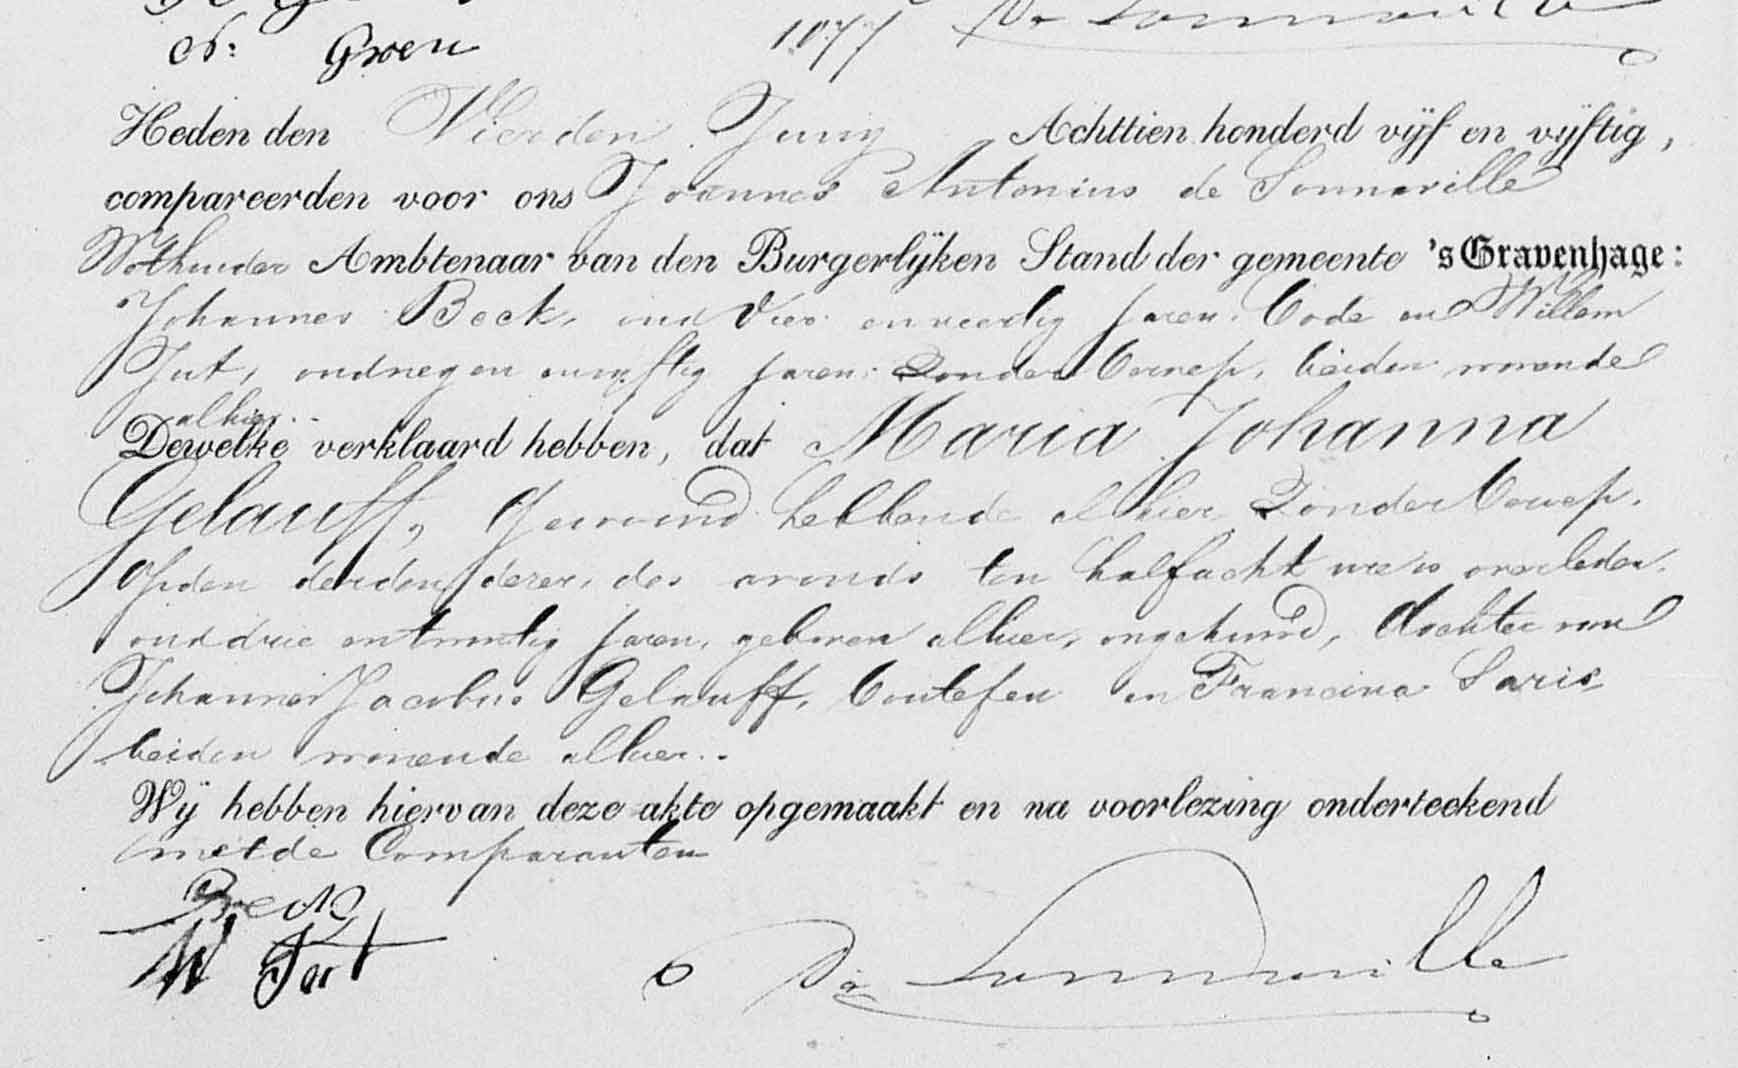 N. Groen 1077 De Sonnaville
Heden den Vierden Juny Achttien honderd vijf en vijftig,
compareerden voor ons Joannes Antonius de Sonnaville
Wethouder Ambtenaar van den Burgerlijken Stand der gemeente 's Gravenhage:
Johannes Beck, oud Vier en veertig jaren. Bode en Willem
Jut, oud negen en vijftig jaren. Zonder beroep, beiden wonende
alhier..
Dewelke verklaard hebben, dat Maria Johanna
Gelauff, Gewoond hebbende alhier Zonder beroep.
Op den derden dezer, des avonds ten half acht ure is overleden.
oud drie en twintig jaren, geboren alhier, ongehuwd, dochter van
Johannes Jacobus Gelauff, en Francina Saris
beiden wonende alhier..
Wij hebben hiervan deze akte opgemaakt en na voorlezing onderteekend
met de Comparanten
Beck
W Jut De Sonnaville